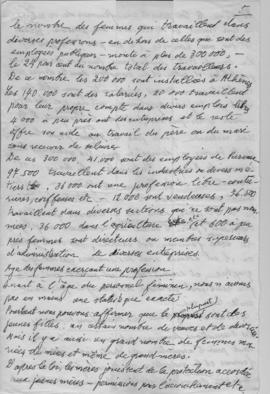 le nombre des femmes qui travaillent dans
diverses professions - en dehors de celles qui sont des
employées publiques - monte à plus de 300 000, -
le 24% par du nombre total des travailleurs.
De ce nombre les 200 000 sont installées à Athènes
Les 190.000 sont des salariées, 20 000 travaillent
pour leur propre compte dans divers emplois
4000 à peu près ont des entreprises et le reste
offre son aide au travail du père ou du mari
sans recevoir de salaire.
De ces 300 000, 41.000 sont des employées de bureau
98.500 travaillent dans les industries ou divers mé-
tiers, 36 000 ont une profession libre - coutu-
rières, coiffeuses etc - 12 000 sont vendeuses, 26.500
travaillent dans diverses sections qui ne sont pas nom-
mées, 36 000 dans l'agriculture et 600 à peu
près femmes sont directeurs ou membres
d'administration de diverses entreprises.
Age des femmes exerçant une profession
Quant à l'âge du personnel féminin, nous n'avons
pas en mains une statistique exacte
Pourtant nous pouvons affirmer que la plupart sont des
jeunes filles, un certain nombre de veuves et de divorcées
Mais il y a aussi un grand nombre de femmes ma-
riées de mères et même de grand-mères.
D'après la loi les mères jouissent de la protection accordée
aux jeunes mères - permissions pour l'accouchement etc